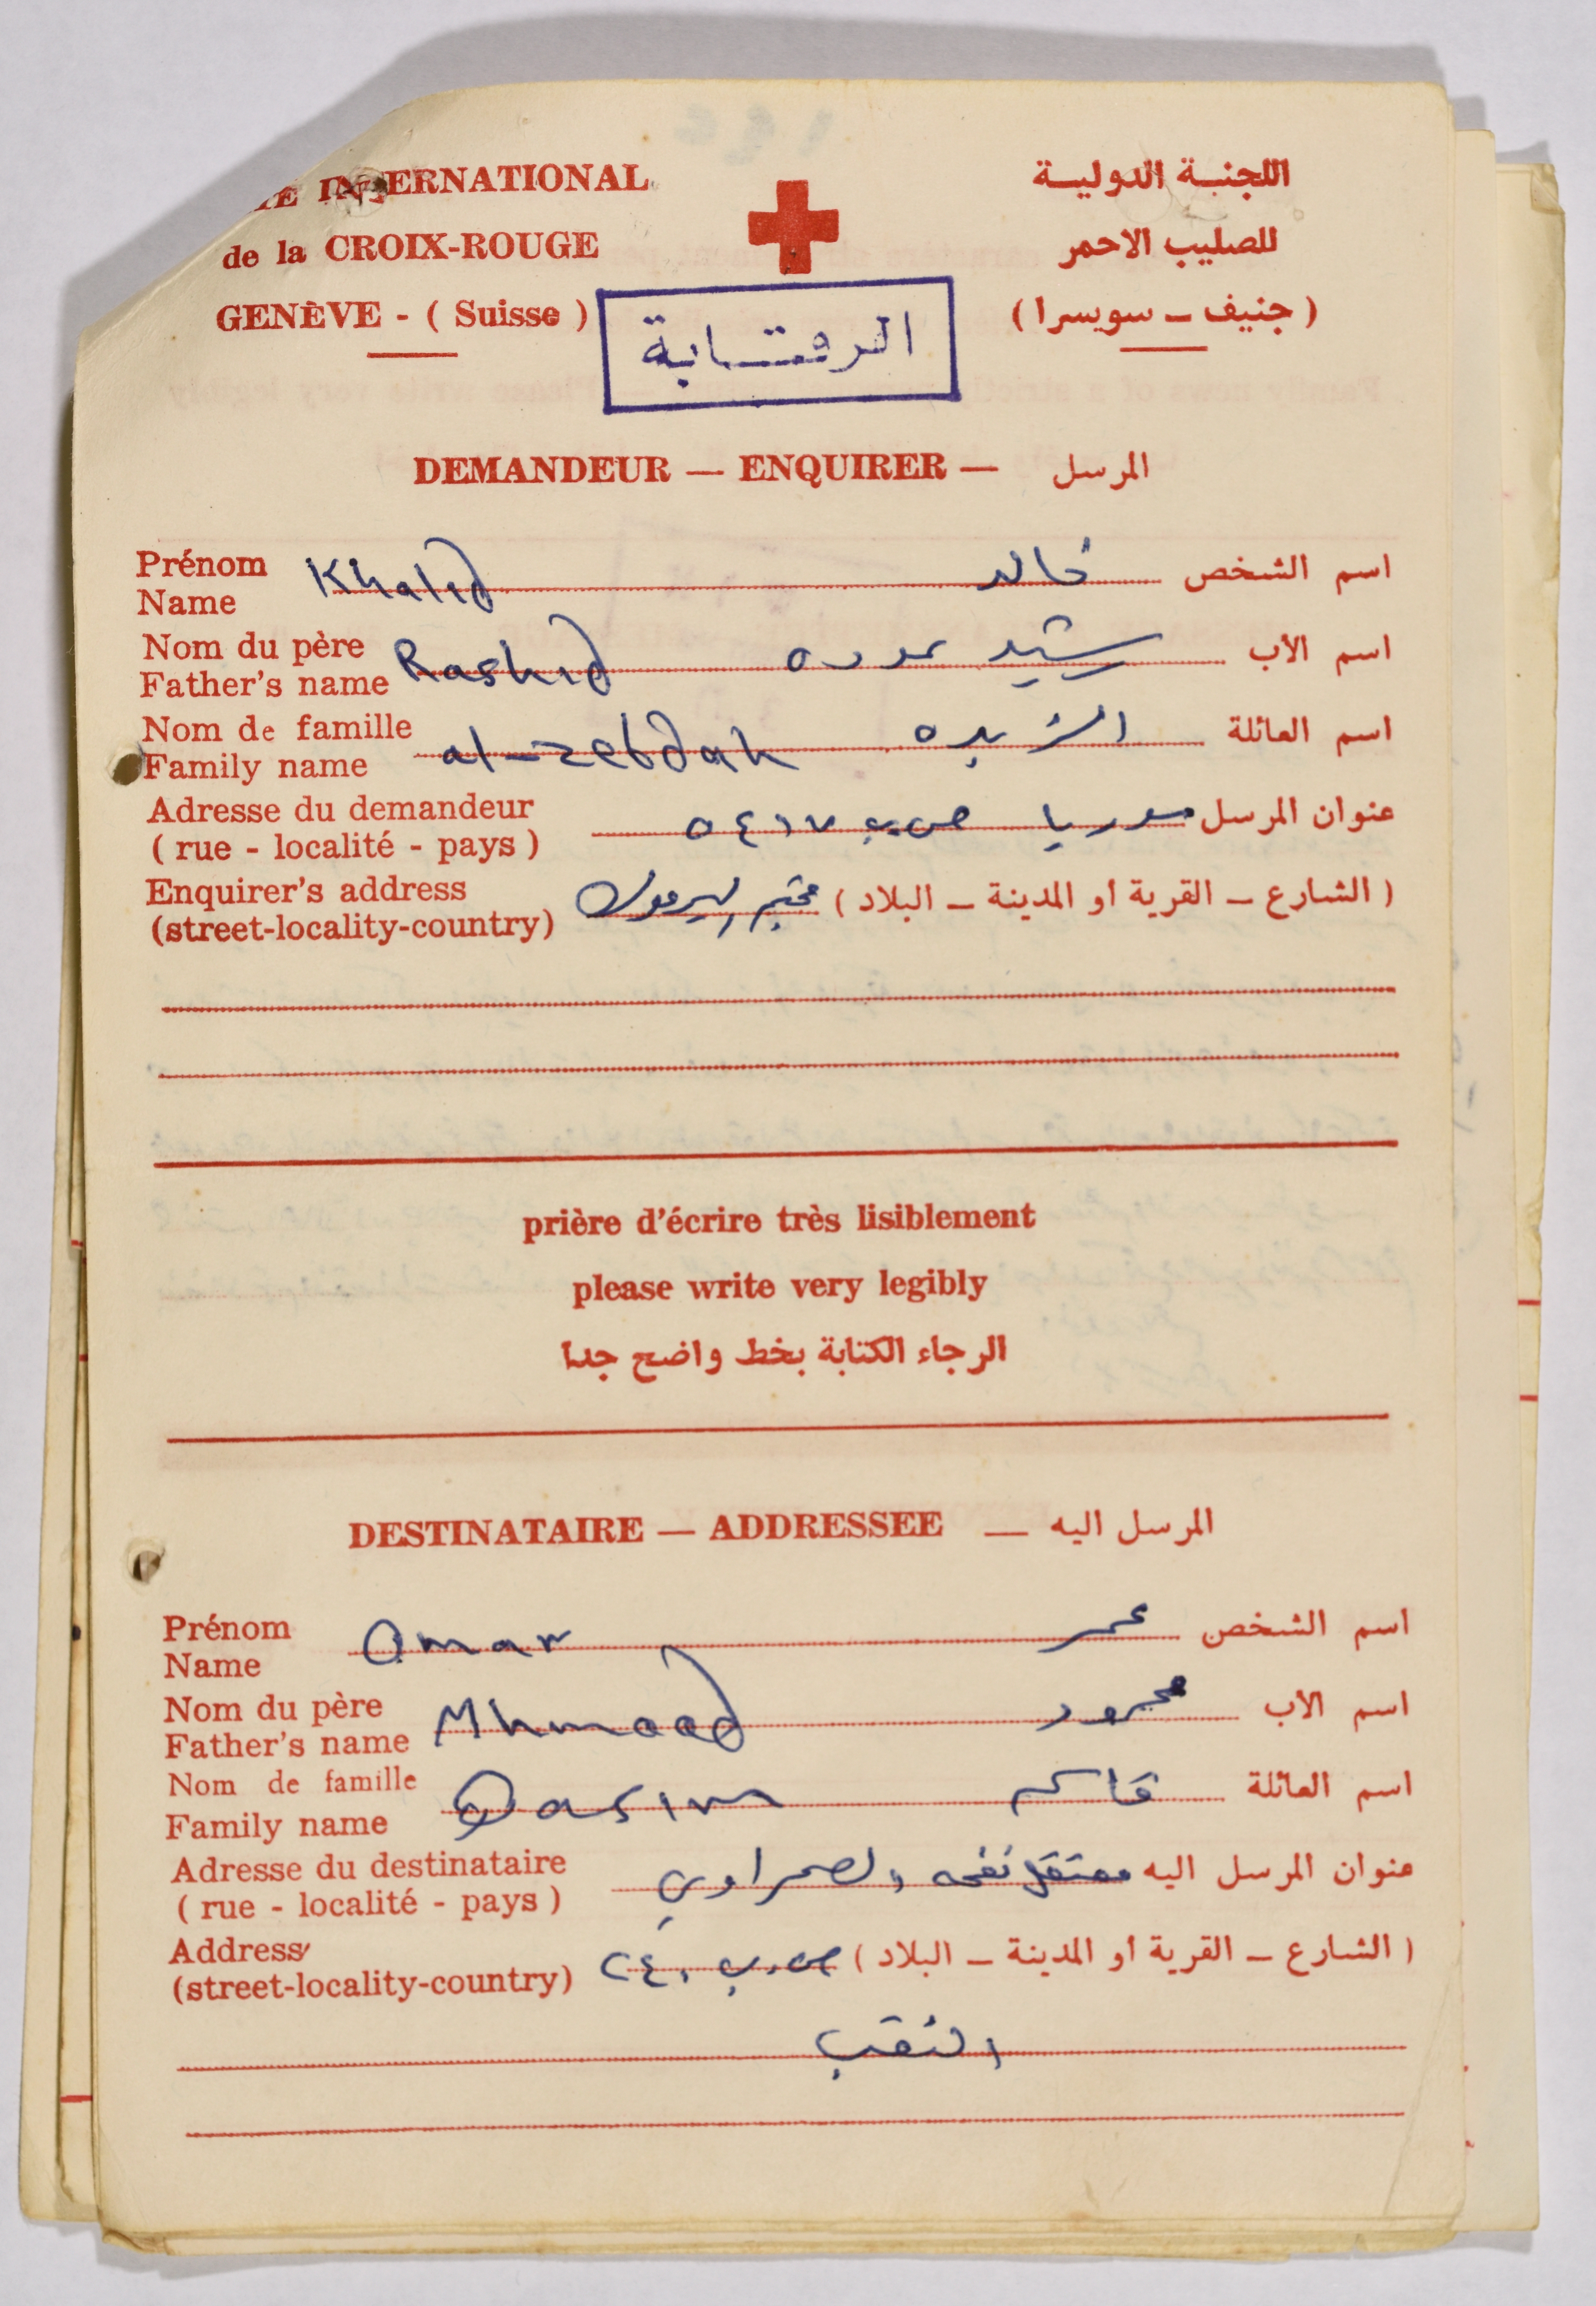 INTERNATIONAL
de la CROIX-ROUGE
GENÈVE - ( Suisse )
اللجنة الدولية
للصليب الاحمر
( جنيف – سويسرا )
الرقابة
DEMANDEUR — ENQUIRER — المرسل
Prénom
Name Khalid خالد اسم الشخص
Nom du père
Father's name Rashid رشيد اسم الأب
Nom de famille
Family name al-zebdah الزبده اسم العائلة
Adresse du demandeur
( rue - localité - pays )
عنوان المرسل سوريا ص.ب ٥٤١٧
Enquirer's address
(street-locality-country)
( الشارع – القرية أو المدينة – البلاد ) مخيم اليرموك
prière d'écrire très lisiblement
please write very legibly
الرجاء الكتابة بخط واضح جدا
DESTINATAIRE — ADDRESSEE — المرسل اليه
Prénom
Name Omar عمر اسم الشخص
Nom du père
Father's name Mhmood محمود اسم الأب
Nom de famille
Family name Qasim قاسم اسم العائلة
Adresse du destinataire
( rue - localité - pays )
عنوان المرسل اليه معتقل نفحه الصحراوي
Address
(street-locality-country)
( الشارع – القرية أو المدينة – البلاد ) ص.ب. ٢٤٠
النقب